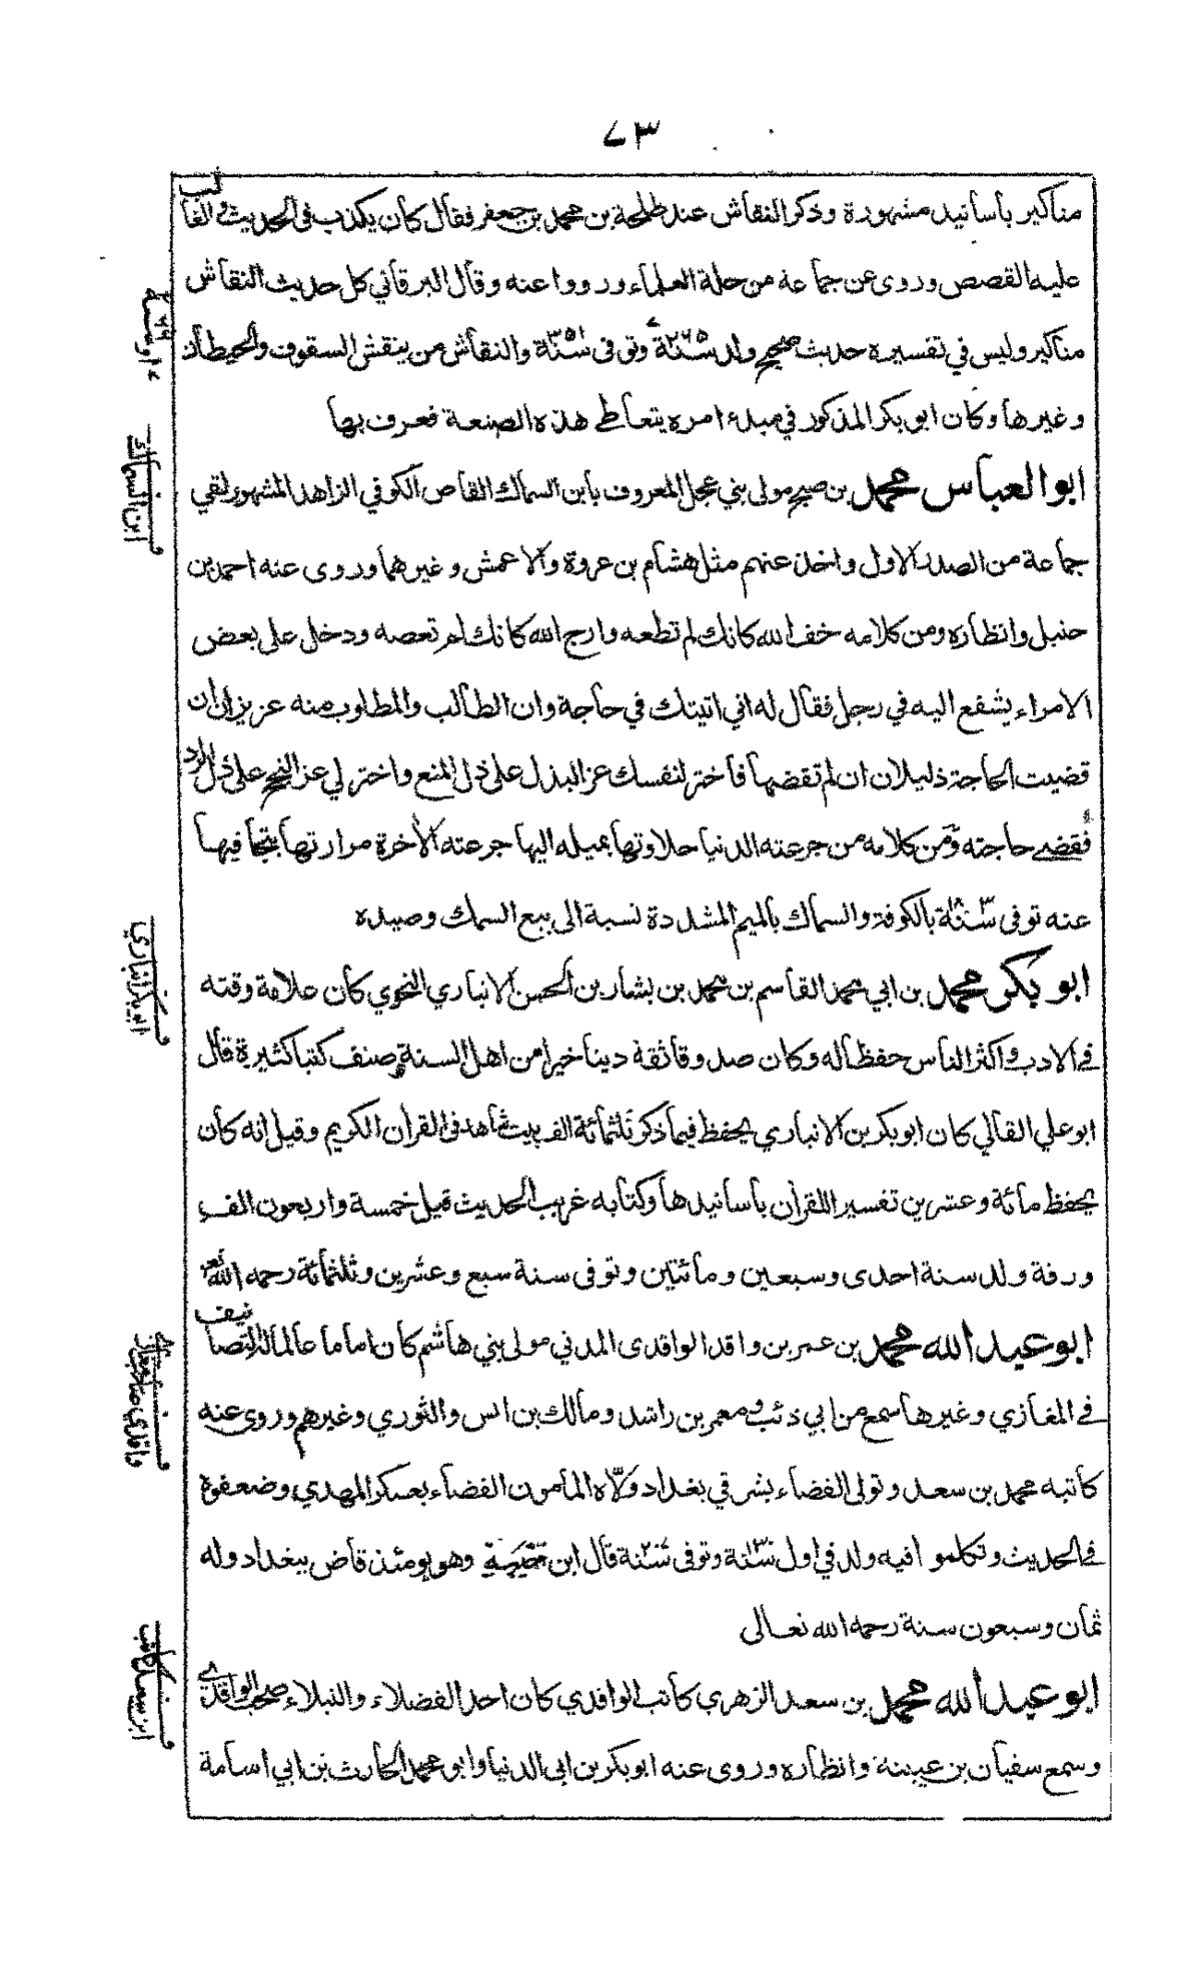 ٧٣
مناكير بأسانيد مشهورة وذكر النقاش عند طلحة بن محمد بن جعفر فقال كان يكذب في الحديث والغالب
عليه القصص وروى عن جماعة من جلة العلماء ورووا عنه وقال البرقاني كل حديث النقاش
مناكير وليس في تفسيره حديث صحيح ولد سنة ٢٦٥ وتوفى سنة ٣٥١ والنقاش من ينقش السقوف والحيطان
وغيرها وكان ابو بكر المذكور في مبدء امره يتعاطى هذه الصنعة فعرف بها
ابو العباس محمد بن صبيح مولى بني عجل المعروف بابن السماك القاص الكوفي الزاهد المشهور لقي
جماعة من الصدر الاول واخذ عنهم مثل هشام بن عروة والاعمش وغيرهما وروى عنه احمد بن
حنبل وانظاره ومن كلامه خف الله كانك لم تطعه وارج الله كانك لم تعصه ودخل على بعض
الامراء يشفع اليه في رجل فقال له اني اتيتك في حاجة وان الطالب والمطلوب منه عزيزان ان
قضيت الحاجة ذليلان ان لم تقضها فاختر لنفسك عز البذل على ذل المنع واختر لي عز النجح على ذل الرد
فقضى حاجته ومن كلامه من جرعته الدنيا حلاوتها بميله اليها جرعته الاخرة مرارتها بتجافيها
عنه توفى سنة بالكوفة والسماك بالميم المشددة نسبة الى بيع السمك وصيده
ابو بكر محمد بن ابي محمد القاسم بن محمد بن بشار بن الحسن الانباري النحوي كان علامة وقته
في الادب واكثر الناس حفظا له وكان صدوقا ثقة دينا خيرا من اهل السنة صنف كتبا كثيرة قال
ابو علي القالي كان ابو بكر بن الانباري يحفظ فيما ذكر ثلثمائة الف بيت شاهد في القران الكريم وقيل انه كان
يحفظ مائة وعشرين تفسير اللقرآن بأسانيدها وكتابه غريب الحديث قيل خمسة واربعون الف
ورقة ولد سنة احدى وسبعين ومائتين وتوفى سنة سبع وعشرين وثلثمائة رحمه الله
ابو عبد الله محمد بن عمر بن واقد الواقدى المدني مولى بني هاشم كان اماما عالما له التصانيف
في المغازي وغيرها سمع من ابي ذئب ومعمر بن راشد ومالك بن انس والثوري وغيرهم وروى عنه
كاتبه محمد بن سعد وتولى القضاء بشرقي بغداد وولاه المأمون القضاء بعسكر المهدي وضعفوه
في الحديث وتكلموا فيه ولد في اول سنة ١٣٠ وتوفى سنة ٢٠٧ قال ابن قتيبة وهو يومئذ قاض ببغداد وله
ثمان وسبعون سنة رحمه الله تعالى
ابو عبد الله محمد بن سعد الزهري كاتب الواقدي كان احد الفضلاء والنبلاء صحب الواقدي
وسمع سفيان بن عيينة وانظاره وروى عنه ابو بكر بن ابى الدنيا وابو محمد الحارث بن ابي اسامة
ابن السماك
ابو بكر انباري
واقدي صاحب مغازي
ابن سعد كاتب